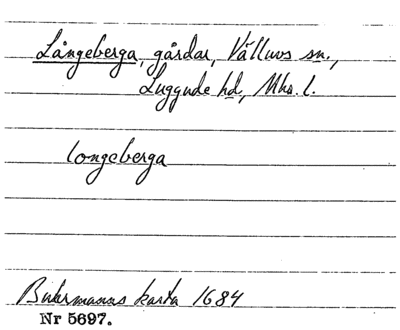 Långeberga, gårdar, Välluvs sn.,
Luggude hd, Mhs. l.
longeberga
Buhrmanns karta 1684
Nr 5697.